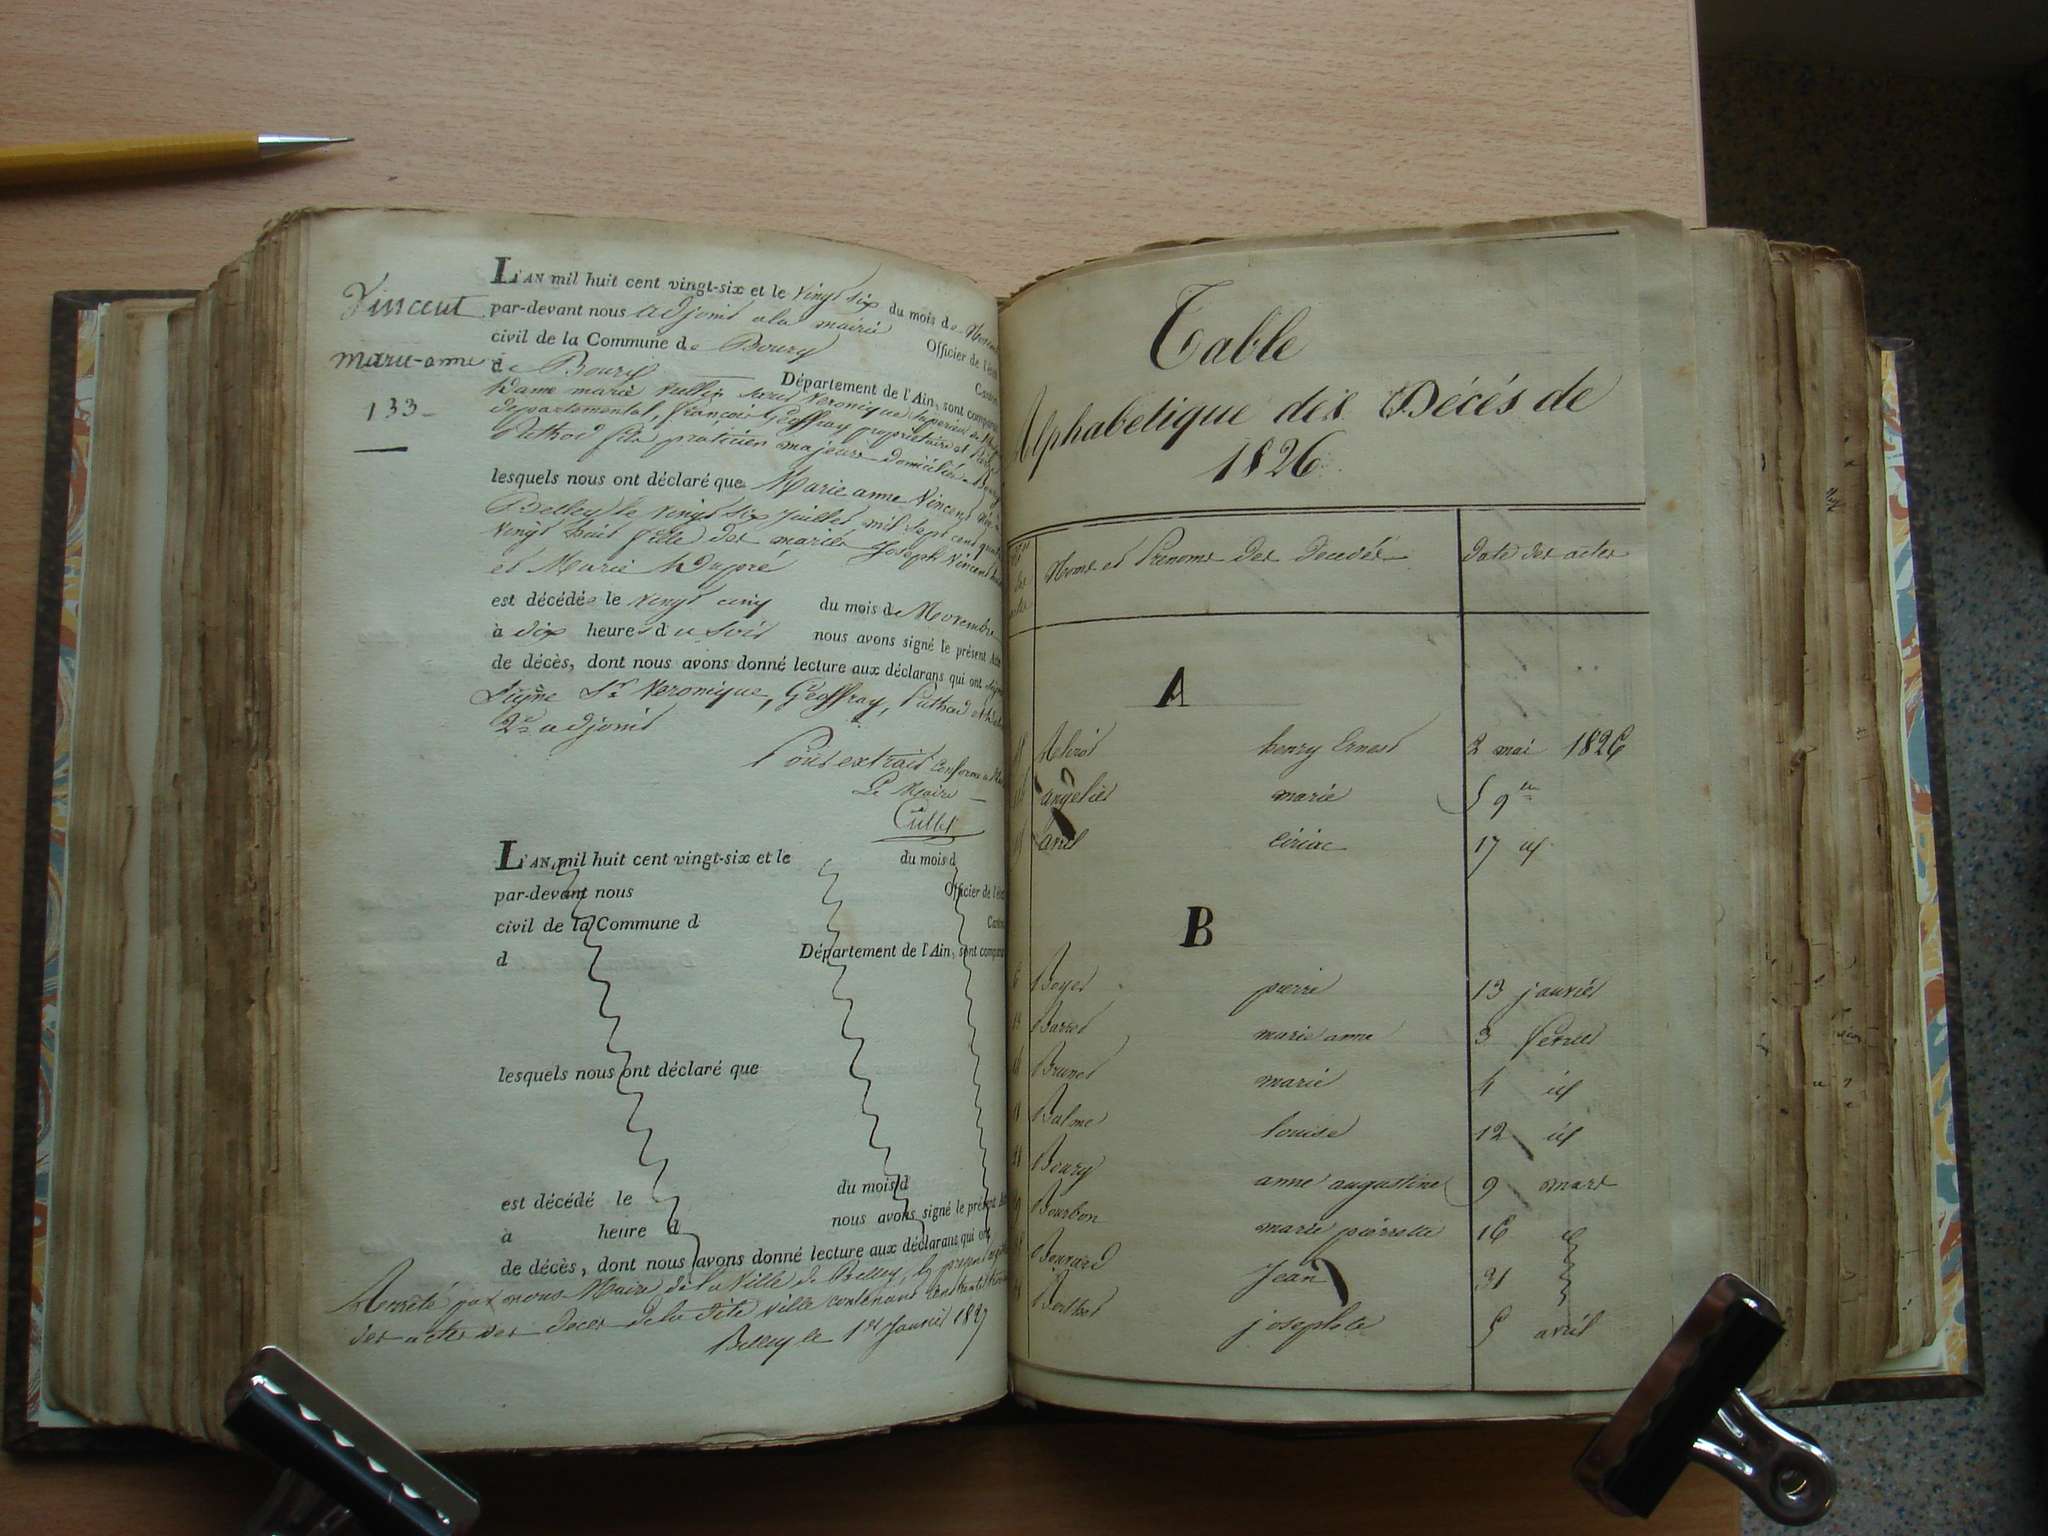 Vincent
marie-anne
133
L'AN mil huit cent vingt-six et le vingt six du mois de
par-devant nous adjoint a la mairie Officier de l'état
civil de la Commune de Bourg Canton
de Bourg Département de l'Ain, sont comparus
Dame marie sœur Veronique
departemental, françois Geoffray propriétaire et
Puthod fils praticien majeurs domiciliés a Bourg
lesquels nous ont déclaré que Marie anne Vincent née a
Belley le vingt six Juillet mil sept cent quatre
vingt huit fille des mariés Joseph Vincent
et Marie Dupré
est décédée le vingt cinq du mois de Novembre
à dix heures du soir nous avons signé le présent Acte
de décès, dont nous avons donné lecture aux déclarans qui ont
Signé Sr Veronique, Geoffray, Puthod
2e adjoint
Pour extrait conforme
Le Maire
Cullet
L'AN mil huit cent vingt-six et le du mois d
par-devant nous Officier de l'état
civil de la Commune d Canton
d Département de l'Ain, sont comparus
lesquels nous ont déclaré que
est décédé le du mois d
à heure d nous avons signé le présent Acte
de décès, dont nous avons donné lecture aux déclarans qui ont
Arrêté par nous Maire de la Ville de Belley, le présent
des actes des deces de la dite ville contenant cent trente trois
Belley le 1er Janvier 1827
Table
Alphabetique des Décés de
1826
Noms et Prenoms des decedés Date des actes
A
henry Ernest 2 mai 1826
angelier marie 5 9bre
ciriac 17 id
B
Boyer pierre 13 janvier
Barret marie anne 3 fevrier
Brunet marie 4 id
Balme louise 12 id
Bourg anne augustine 9 mars
Bourbon marie pierrette 16 id
Bonnard Jean 31
Berthet josephte 5 avril